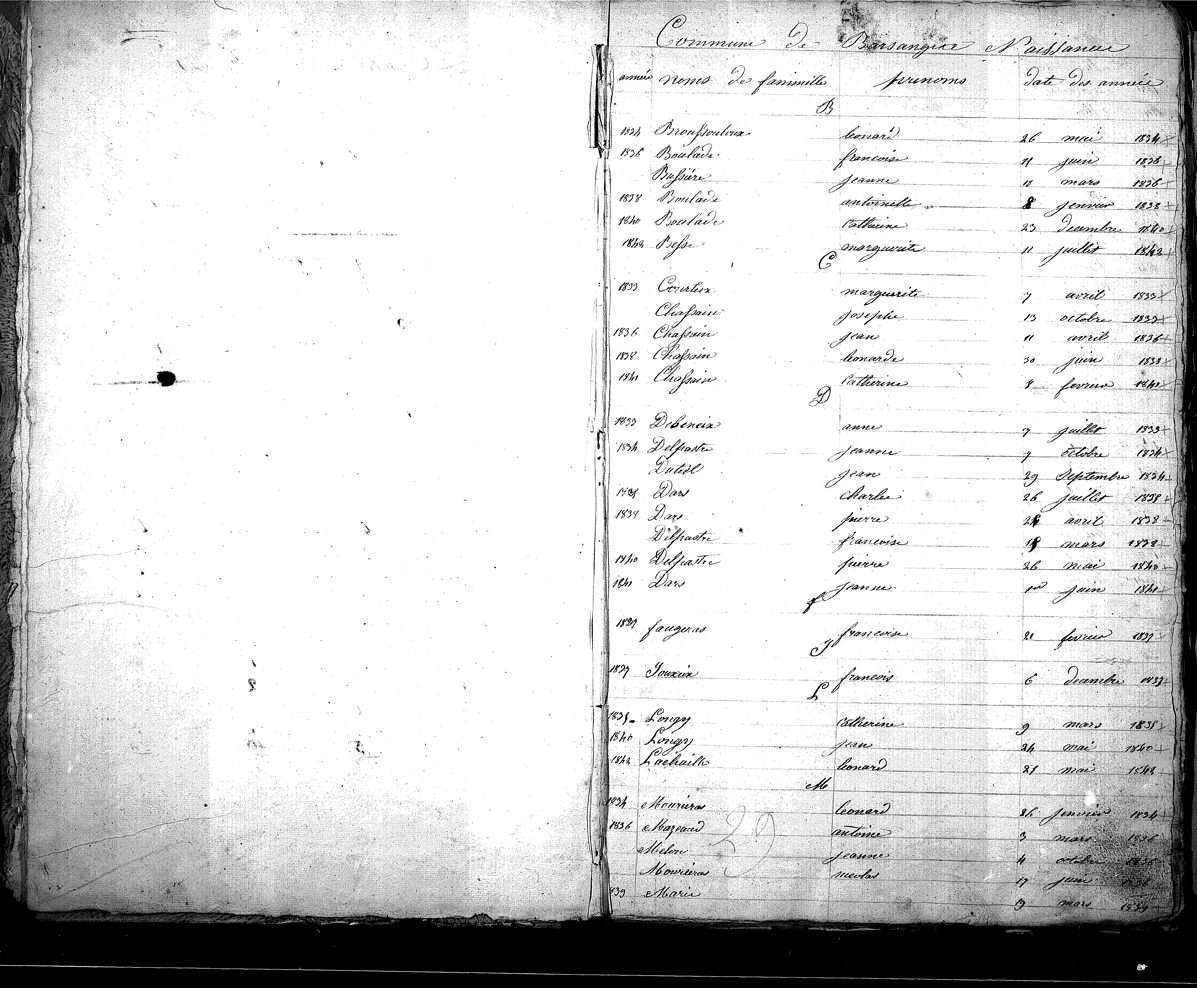 Commune de Barsanges Naissance
année noms de fammille prenoms date des année
B
1834 Broussouloux leonard 26 mai 1834
1836 Boulade francoise 11 juin 1836
Bussiére jeanne 12 mars 1836
1838 Boulade antoinette 8 jenvier 1838
1840 Boulade Catherine 23 decembre 1840
1842 Besse marguerite 11 juillet 1842
C
1833 Courteix marguerite 7 avril 1833
Chassain josephe 13 octobre 1833
1836 Chassain jean 11 avril 1836
1838 Chassain leonarde 30 juin 1838
1841 Chassain Catherine 8 fevrier 1841
D
1833 Debeneix anne 7 juillet 1833
1834 Delpastre jeanne 7 octobre 1834
Duteil jean 29 Septembre 1834
Dars charles 26 juillet
Dars pierre avril 1838
Delpastre francoise mars 1838
1840 Delpastre pierre 26 mai 1840
1841 Dars jeanne 1er juin 1841
f
faugeras francoise 21 fevrier
J
1839 Jouxeix francois 6 decembre 1839
L
Longy Catherine 9 mars
1840 Longy jean 24 mai 1840
1842 Lachaille leonard 21 mai 1842
M
1834 Mourieras leonard 26 jenvier 1834
1836 Mazeaud antoine 3 mars 1836
Melon jeanne 4 octobre 1836
Mourieras nicolas 17 juin 1836
39 Marie 13 mars 1839
29